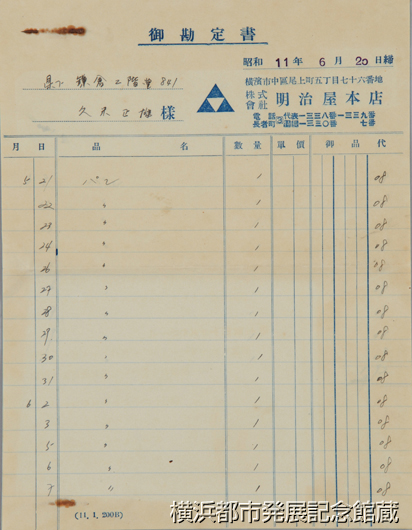 御勘定書
昭和 11年 6月 20日締
県下 鎌倉二階堂 841
様
橫濱市中區尾上町五丁目七十六番地
株式會社 明治屋本店
電話 代表一三三八番一三三九番
長者町 一三五〇番 七番
月 日 品名 數量 單價 御品代
5 21 パン 1 08
22 〃 1 08
23 〃 1 08
24 〃 1 08
26 〃 1 08
27 〃 1 08
28 〃 1 08
29 〃 1 08
30 〃 1 08
31 〃 1 08
6 2 〃 1 08
3 〃 1 08
5 〃 1 08
6 〃 1 08
7 〃 1 08
横浜都市発展記念館蔵